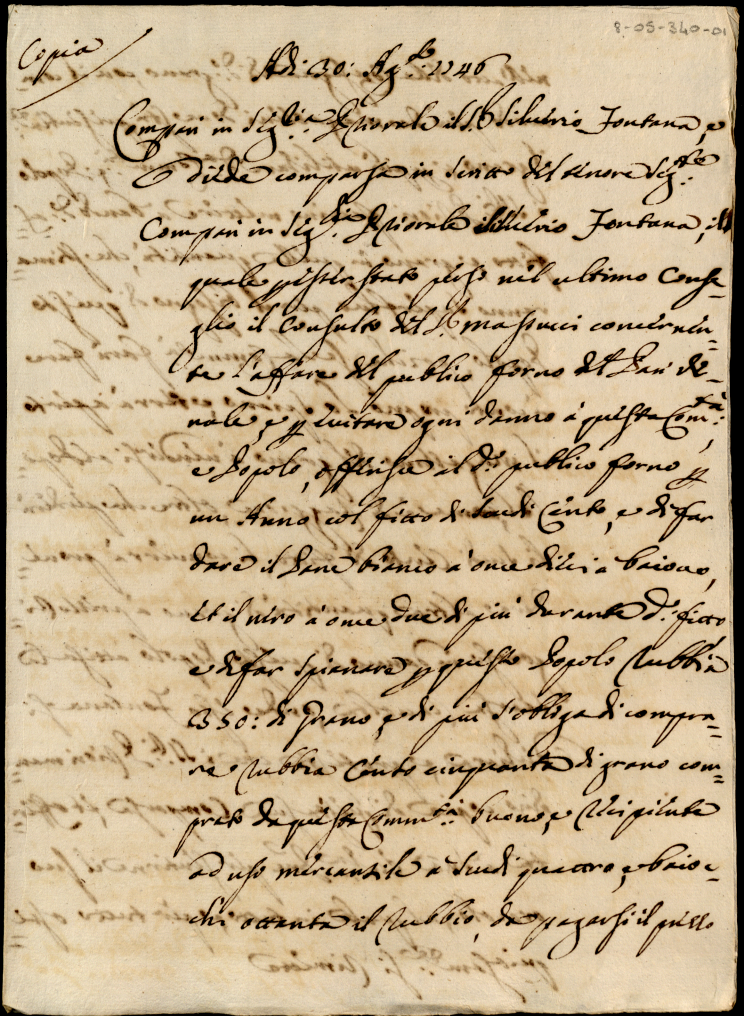 8-05-340-01
Copia
Adi 30: Ag.to 1746
Compari in Seg.ria Priorale il S.r Silverio Fontana, e
diede comparsa in scritto del tenore Seg.te
Compari in Seg.ria Priorale Silverio Fontana, il
quale p esser stato perso nel ultimo Conse-
glio il Consulto del S.r Massucci concernen-
te l'affare del publico forno del Pan Ve-
nale, e p evitare ogni danno à questa Com.tà,
e Popolo, offerisce il d.o publico forno p
un Anno col fitto di Scudi Cento, e di far
dare il Pane bianco à once dieci a baiocco,
et il nero à once due di più durante d.o fitto
e di far spianare p questo Popolo Rubbia
350: di Grano, e di più s'obliga di compra-
re Rubbia Cento cinquanta di grano com-
prato da questa Comm.tà buono, e Recipiente
ad uso mercantile à Scudi quattro, e baioc-
chi ottanta il Rubbio, da pagarsi il prezzo